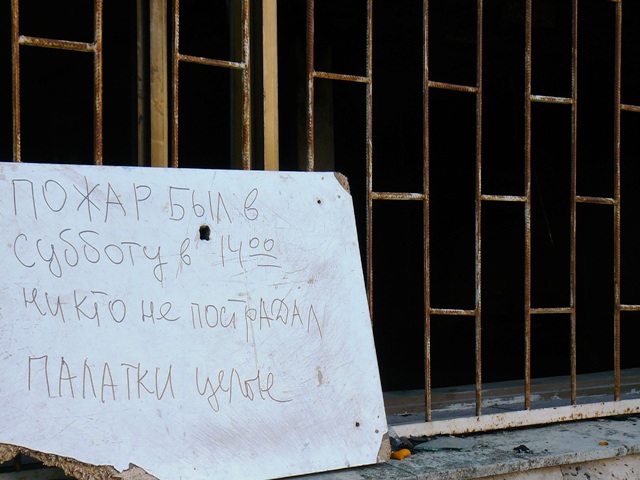 ПОЖАР БЫЛ В
СУББОТУ В 14⁰⁰
НИКТО НЕ ПОСТРАДАЛ
ПАЛАТКИ целые